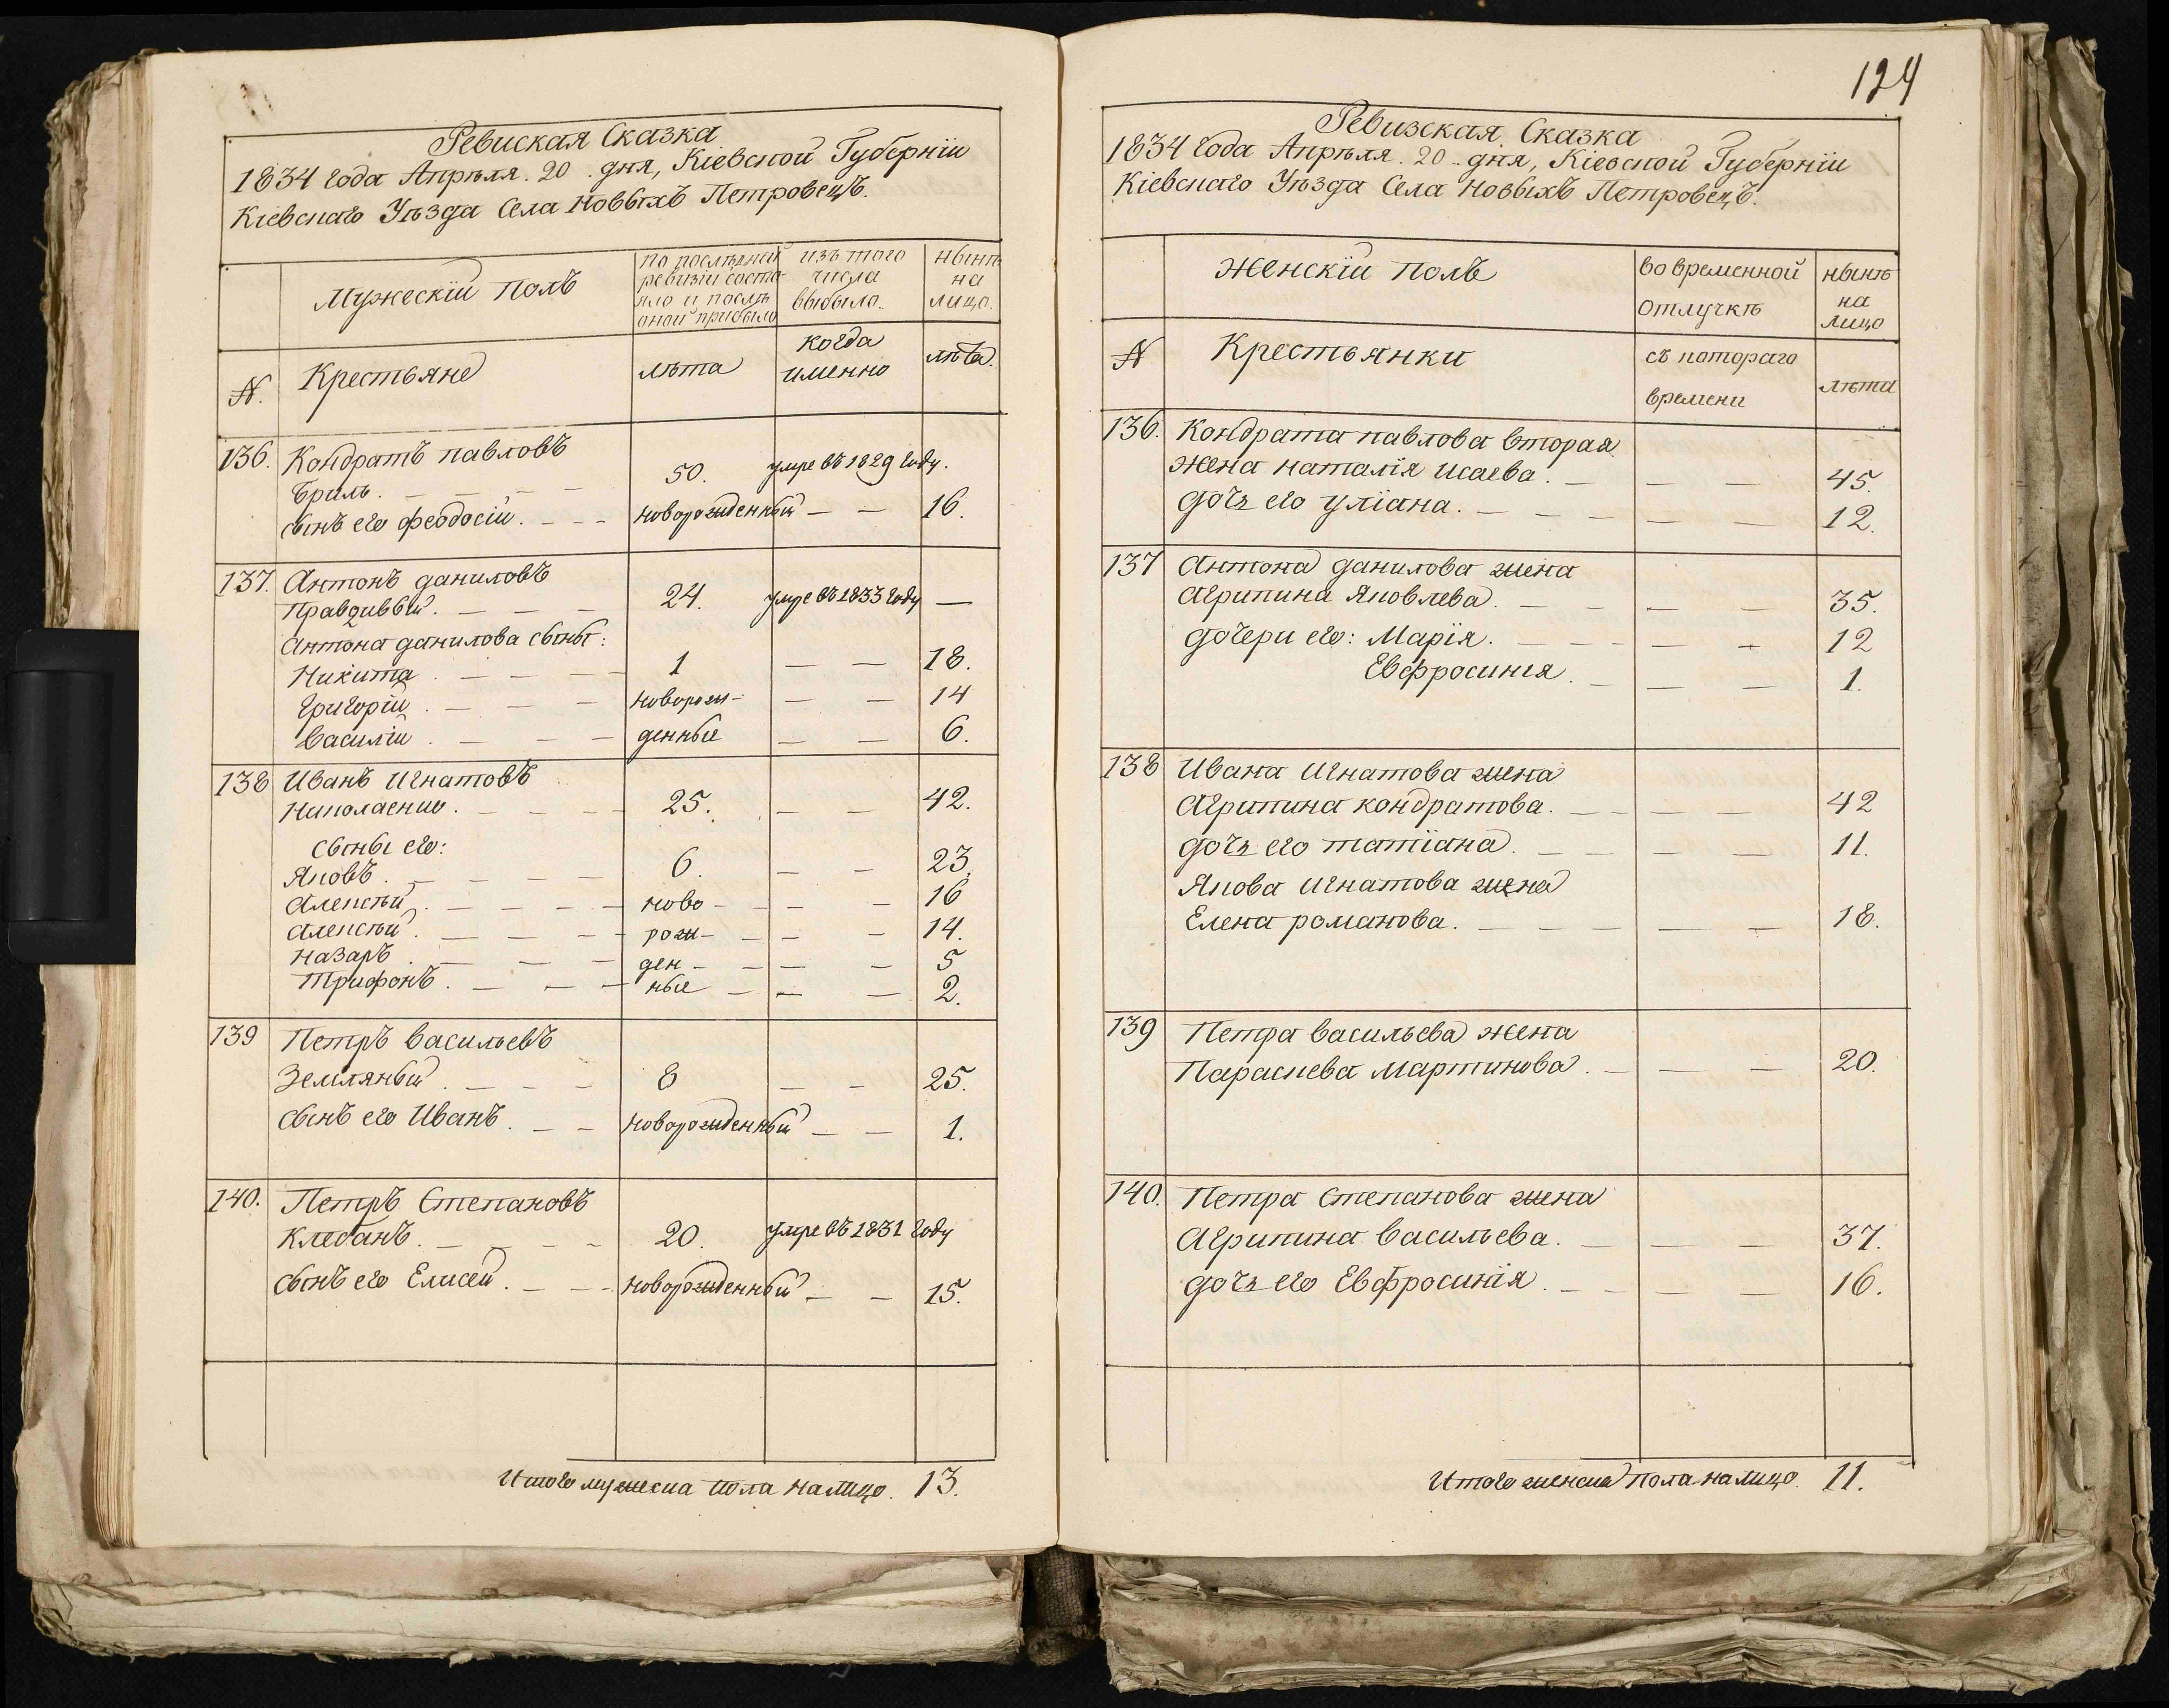 Ревиская Сказка
1834 года Апрѣля. 20. дня, Кіевской Губерніи
Кіевскаго Уѣзда Села Новыхъ Петровецъ.
Мужескій полъ
по послѣдней ревизіи состояло и послѣ оной прибыло
изъ того числа выбыло.
нынѣ на лицо.
№. Крестьяне
лѣта
когда именно
лѣта.
136. Кондратъ павловъ
Бриль. 50. умре въ 1829 году.
сынъ его феодосій. новорожденный 16.
137. Антонъ даниловъ
Правдивый. 24. умре въ 1833 году
Антона данилова сыны:
Никита 1 18.
Григорій новорож- 14
Василій денные 6.
138 Иванъ Игнатовъ
Николаенко. 25. 42.
сыны его:
Яковъ. 6. 23.
Алексѣй. ново- 16
Алексѣй. рож- 14.
назаръ ден- 5
Трифонъ. ные 2.
139 Петръ Васильевъ
Земляный 8 25.
Сынъ его Иванъ. новорожденный 1.
140. Петръ Степановъ
Клебанъ. 20. умре въ 1831 году
Сынъ его Елисей. новорожденный 15.
Итого мужеска пола налицо. 13.
124
Ревизская Сказка
1834 года Апрѣля. 20. дня, Кіевской Губерніи
Кіевскаго Уѣзда Села Новыхъ Петровецъ.
Женскій полъ
во временной отлучкѣ
нынѣ на лицо
№ Крестьянки
съ котораго времени
лѣта
136. Кондрата павлова вторая
жена наталія исаева. 45.
дочь его уліана. 12.
137 Антона данилова жена
Агрипина Яковлева. 35.
дочери его: Марія. 12
Евфросинія. 1.
138 Ивана Игнатова жена
Агрипина кондратова. 42
дочь его татіана. 11.
Якова Игнатова жена
Елена романова. 18.
139 Петра васильева жена
Параскева мартинова. 20.
140. Петра Степанова жена
Агрипина Васильева. 37.
дочь его Евфросинія. 16.
Итого женска пола налицо. 11.